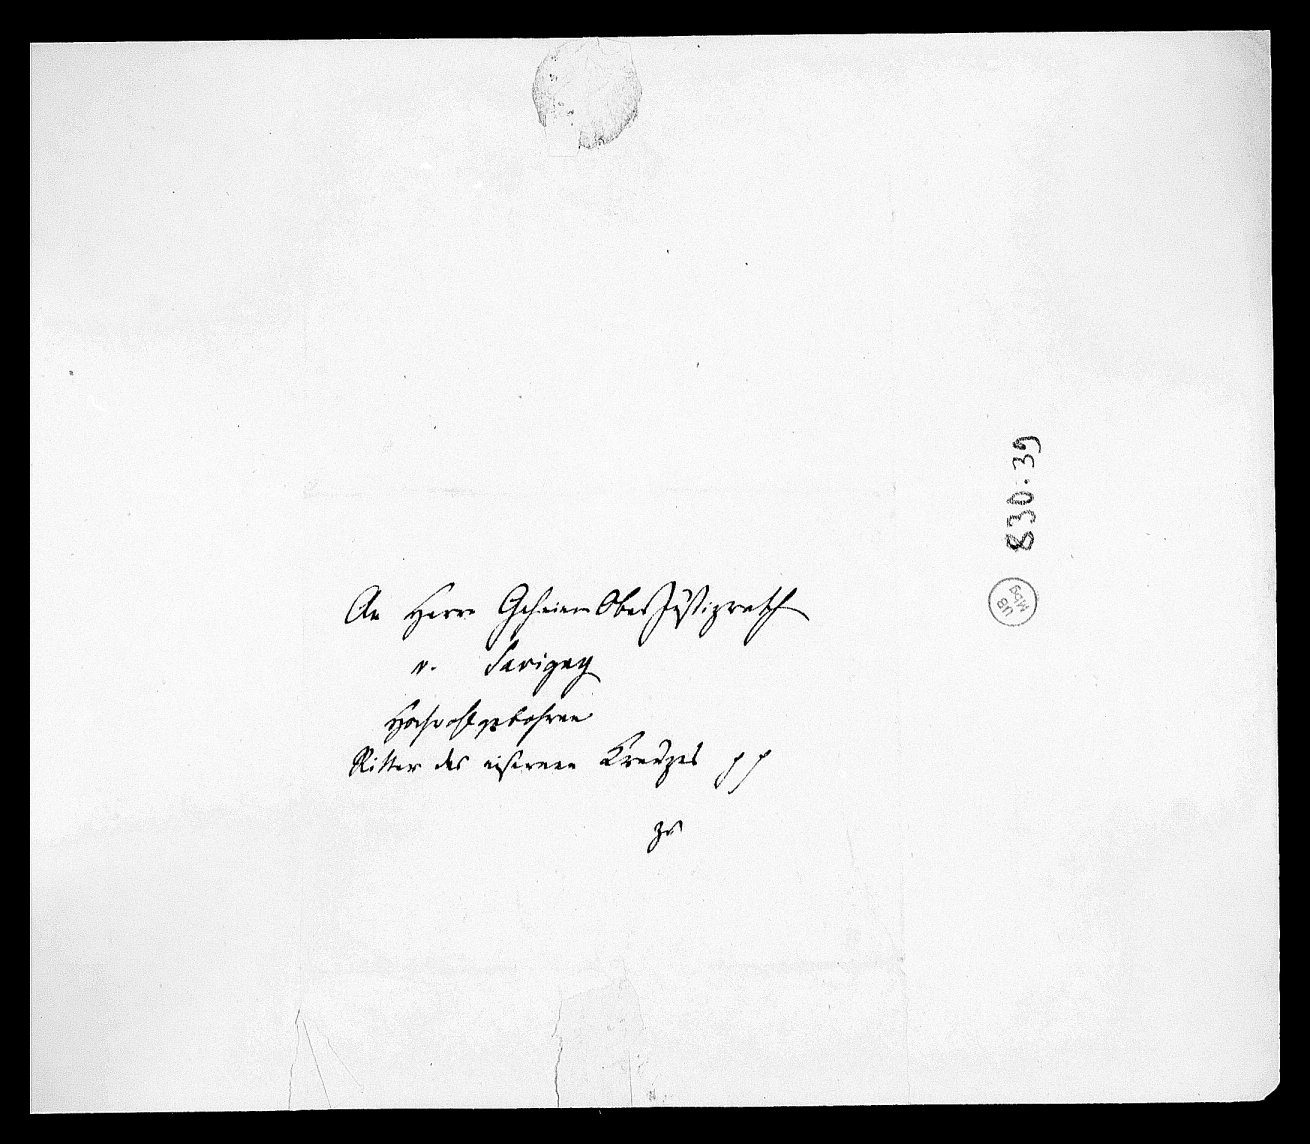 An Herrn Geheimen Ober Justizrath
v. Savigny
Hochwohlgebohren
Ritter des eisernen Kreuzes pp
zu
830.39
UB
Mbg